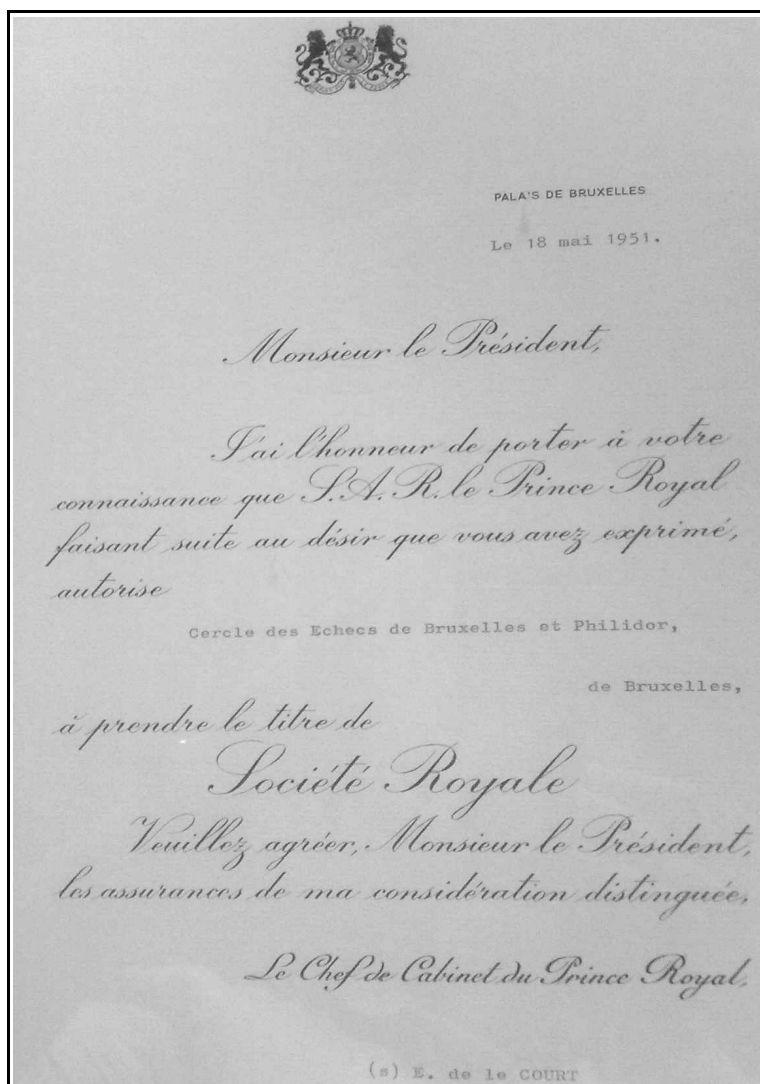 PALA'S DE BRUXELLES
Le 18 mai 1951.
Monsieur le Président,
J'ai l'honneur de porter à votre
connaissance que S.A.R. le Prince Royal
faisant suite au désir que vous avez exprimé,
autorise
Cercle des Echecs de Bruxelles et Philidor,
de Bruxelles,
à prendre le titre de
Société Royale
Veuillez agréer, Monsieur le Président,
les assurances de ma considération distinguée.
Le Chef de Cabinet du Prince Royal,
(s) E. de le COURT